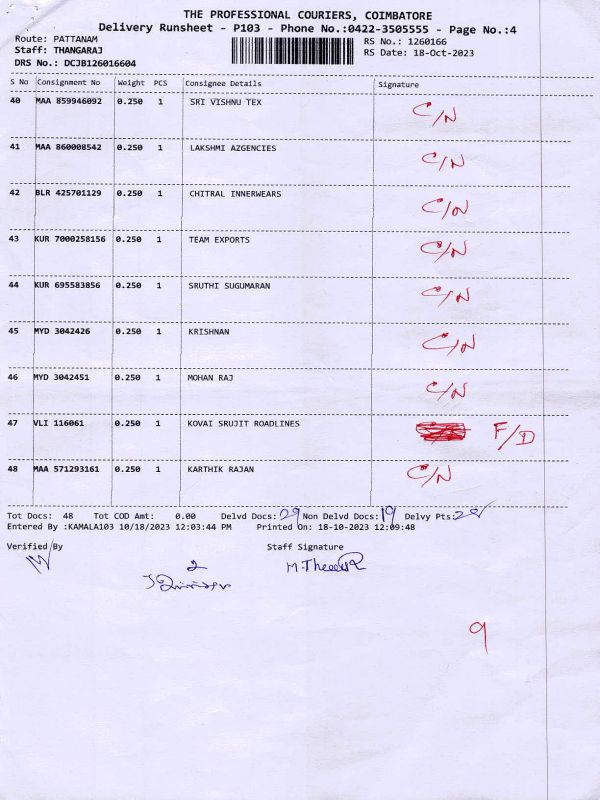 THE PROFESSIONAL COURIERS, COIMBATORE
Delivery Runsheet - P103 - Phone No.:0422-3505555 - Page No.:4
Route: PATTANAM RS No.: 1260166
Staff: THANGARAJ RS Date: 18-Oct-2023
DRS No.: DCJB126016604
S No Consignment No Weight PCS Consignee Details Signature
40 MAA 859946092 0.250 1 SRI VISHNU TEX C/N
41 MAA 860008542 0.250 1 LAKSHMI AZGENCIES C/N
42 BLR 425701129 0.250 1 CHITRAL INNERWEARS C/N
43 KUR 7000258156 0.250 1 TEAM EXPORTS C/N
44 KUR 695583856 0.250 1 SRUTHI SUGUMARAN C/N
45 MYD 3042426 0.250 1 KRISHNAN C/N
46 MYD 3042451 0.250 1 MOHAN RAJ C/N
47 VLI 116061 0.250 1 KOVAI SRUJIT ROADLINES F/D
48 MAA 571293161 0.250 1 KARTHIK RAJAN C/N
Tot Docs: 48 Tot COD Amt: 0.00 Delvd Docs: 29 Non Delvd Docs: 19 Delvy Pts:
Entered By :KAMALA103 10/18/2023 12:03:44 PM Printed On: 18-10-2023 12:09:48
Verified By Staff Signature
2
9